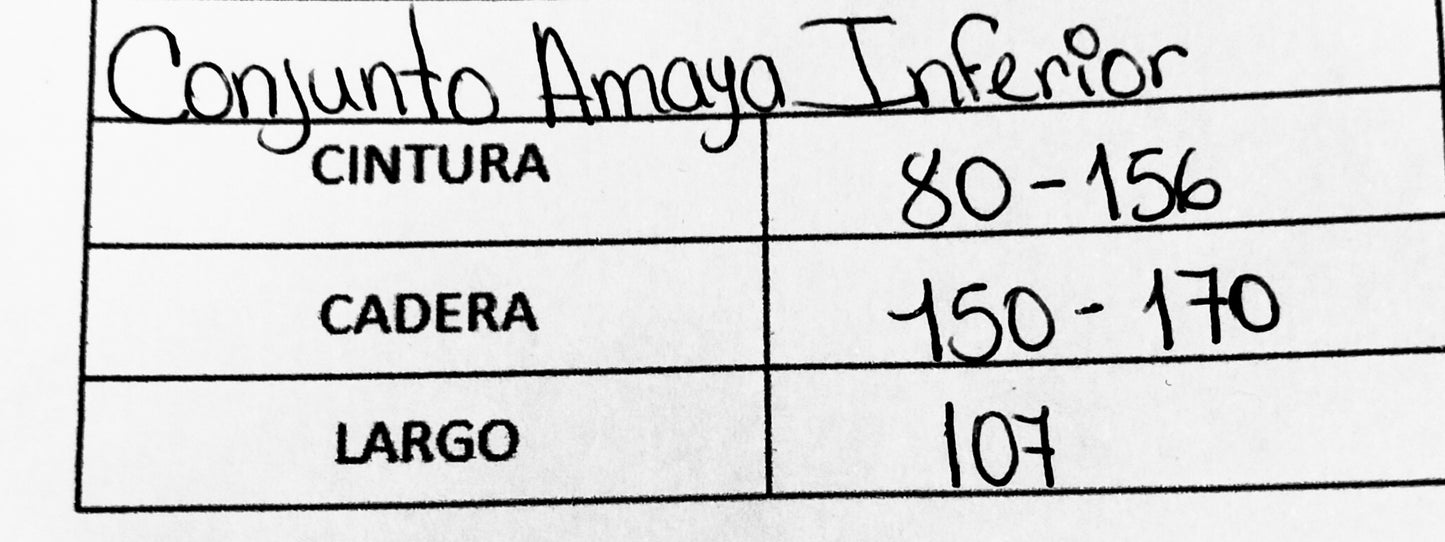 Conjunto Amaya Inferior
CINTURA 80-156
CADERA 150-170
LARGO 107